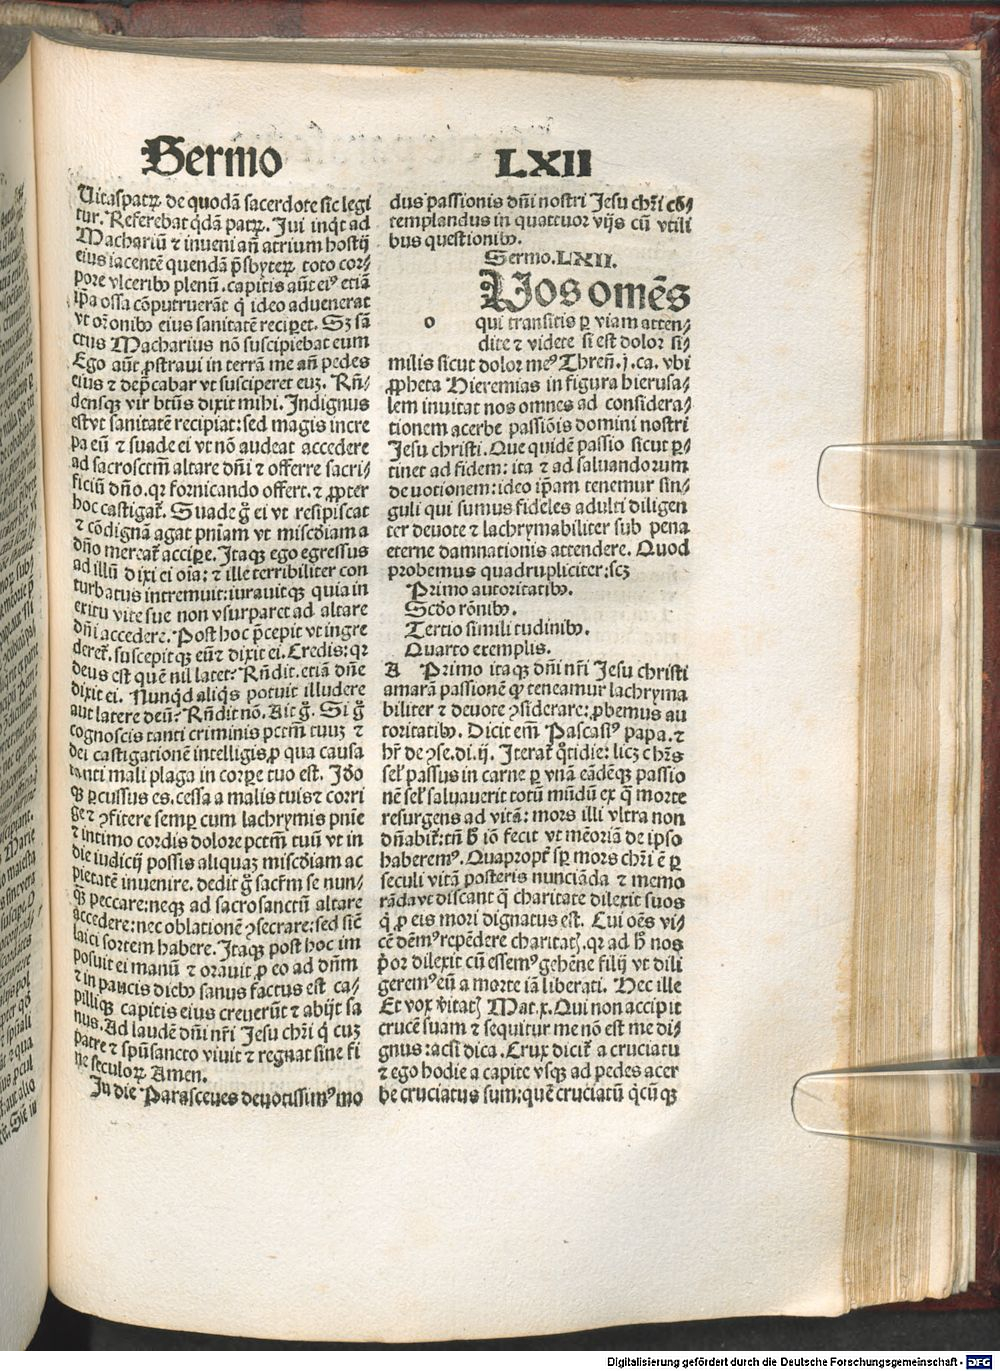 Sermo LXII
Uitaspatꝝ. de quodā sacerdote sic legi
tur. Referebat qdā patꝝ. Jui inqt ad
Machariū ⁊ inveni añ atrium hostij
eius iacentē quendā p̄sbyteꝝ toto cor⸗
pore vlceribꝰ plenū. capitis aūt eiꝰ etiā
ip̄a ossa cōputruerāt q̇ ideo advenerat
vt or̄onibꝰ eius sanitatē reciꝑet. Sꝫ sā
ctus Macharius nō suscipiebat eum
Ego aūt ꝓstravi in terrā me añ pedes
eius ⁊ dep̄cabar vt susciperet euꝫ. Rn̄⸗
densqꝫ vir btūs dixit mihi. Indignus
est vt sanitatē recipiat: sed magis incre
pa eū ⁊ suade ei vt nō audeat accedere
ad sacrosctm̄ altare dn̄i ⁊ offerre sacri⸗
ficiū dn̄o. qꝛ fornicando offert. ⁊ ꝓpter
hoc castigat᷑. Suade g̊ ei vt resipiscat
⁊ cōdignā agat pn̄iam vt misc̄diam a
dn̄o mereat᷑ acciꝑe. Itaqꝫ ego egressus
ad illū dixi ei oīa: ⁊ ille terribiliter con
turbatus intremuit: iuravitqꝫ quia in
exitu vite sue non vsurparet ad altare
dn̄i accedere. Post hoc p̄cepit vt ingre
deret᷑. suscepitqꝫ eū ⁊ dixit ei. Credis: qꝛ
deus est quē nil latet? Rn̄dit. etiā dn̄e
dixit ei. Nunqd aliq̇s potuit illudere
aut latere deū? Rn̄dit nō. Ait g̊. Si g̊
cognoscis tanti criminis pctm̄ tuuꝫ ⁊
dei castigationē intelligis, ꝓ qua causa
tanti mali plaga in corꝑe tuo est. Iđo
qꝫ ꝑcussus es. cessa a malis tuis ⁊ corri
ge ⁊ ꝯfitere semꝑ cum lachrymis pn̄ie
⁊ intimo cordis dolore pctm̄ tuū vt in
die iudicij possis aliquaꝫ misc̄diam ac
pietatē invenire. dedit g̊ sacr̄m se nun⸗
qꝫ peccare: neqꝫ ad sacrosanctū altare
accedere: nec oblationē ꝯsecrare: sed sic̄
laici sortem habere. Itaqꝫ post hoc im
posuit ei manū ⁊ oravit ꝓ eo ad dn̄m
⁊ in paucis diebꝰ sanus factus est ca⸗
pilliqꝫ capitis eius creverūt ⁊ abijt sa
nus. Ad laudē dn̄i nr̄i Jesu chr̄i q̇ cuꝫ
patre ⁊ spū sancto vivit ⁊ regnat sine fi
ne seculoꝝ Amen.
In die Parasceves devotissimꝰ mo
dus passionis dn̄i nostri Jesu chr̄i cō⸗
templandus in quattuor vijs cū vtili
bus questionibꝰ.
Sermo. LXII.
Uos omēs
o qui transitis ꝑ viam atten⸗
dite ⁊ videte si est dolor si⸗
milis sicut dolor meꝰ Thren̄. j. ca. vbi
ꝓpheta Hieremias in figura hierusa⸗
lem invitat nos omnes ad considera⸗
tionem acerbe passiōis domini nostri
Jesu christi. Que quidē passio sicut ꝑ⸗
tinet ad fidem: ita ⁊ ad salvandorum
devotionem: ideo ip̄am tenemur sin⸗
guli qui sumus fideles adulti diligen
ter devote ⁊ lachrymabiliter sub pena
eterne damnationis attendere. Quod
probemus quadrupliciter: scꝫ
Primo autoritatibꝰ.
Scđo rōnibꝰ.
Tertio similitudinibꝰ.
Quarto exemplis.
A Primo itaqꝫ dn̄i nr̄i Jesu christi
amarā passionē qꝫ teneamur lachryma
biliter ⁊ devote ꝯsiderare: ꝓbemus au
toritatibꝰ. Dicit em̄ Pascasiꝰ papa. ⁊
hr̄ de ꝯse. di. ij. Iterat᷑ q̇tidie: licꝫ chr̄s
sel̄ passus in carne ꝑ vnā eādēqꝫ passio
nē sel̄ salvaverit totū mūdū ex q̇ morte
resurgens ad vitā: mors illi vltra non
dn̄abit᷑: tn̄ ƀ iō fecit vt mēoriā de ipso
haberemꝰ. Quapropt̄ sꝑ mors chr̄i ē ꝑ
seculi vitā posteris nunciāda ⁊ memo
rāda vt discant q̇ charitate dilexit suos
q̇ ꝓ eis mori dignatus est. Cui oēs vi⸗
cē dēmꝰ repēdere charitatꝭ. qꝛ ad ħ nos
p̄or dilexit cū essemꝰ gehēne filij vt dili
geremꝰ eū a morte iā liberati. Hec ille
Et vox v̄itatꝭ Mat. x. Qui non accipit
crucē suam ⁊ sequitur me nō est me di⸗
gnus: acsi dicā. Crux dicit᷑ a cruciatu
⁊ ego hodie a capite vsqꝫ ad pedes acer
be cruciatus sum: quē cruciatū q̇cūqꝫ
Digitalisierung gefördert durch die Deutsche Forschungsgemeinschaft - DFG